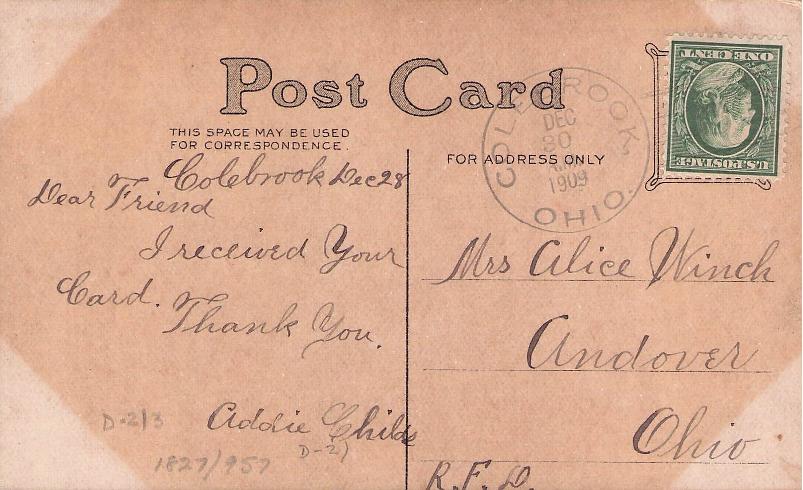 Post Card
THIS SPACE MAY BE USED
FOR CORRESPONDENCE.
FOR ADDRESS ONLY
COLEBROOK,
DEC
30
1909
OHIO.
ONE CENT
U.S. POSTAGE
Colebrook Dec 28
Dear Friend
I received Your
Card.
Thank You.
Addie Childs
D-213
D-21
1827/957
Mrs Alice Winch
Andover
Ohio
R.F.D.